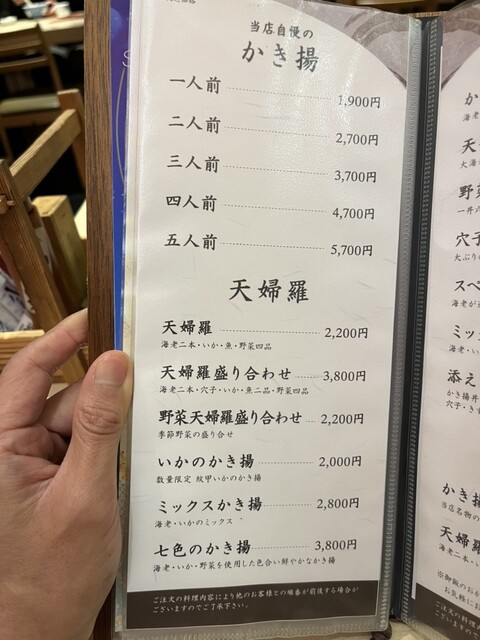 当店自慢の
かき揚
一人前 1,900円
二人前 2,700円
三人前 3,700円
四人前 4,700円
五人前 5,700円
天婦羅
天婦羅 2,200円
海老二本・いか・魚・野菜四品
天婦羅盛り合わせ 3,800円
海老二本・穴子・いか・魚二品・野菜四品
野菜天婦羅盛り合わせ 2,200円
季節野菜の盛り合せ
いかのかき揚 2,000円
数量限定 紋甲いかのかき揚
ミックスかき揚 2,800円
海老・いかのミックス
七色のかき揚 3,800円
海老・いか・野菜を使用した色合い鮮やかなかき揚
ご注文の料理内容により他のお客様との順番が前後する場合が
ございますのでご了承下さい。
か
海老
天
大海
野菜
一丼
穴子
大ぶりの
スペ
海老が
ミッ
海老・い
添え
かき揚丼
穴子・き
かき揚
当店名物の
天婦羅
海老二本・
※御飯のおか
お気軽にお
ご注文の料理内
ございますので